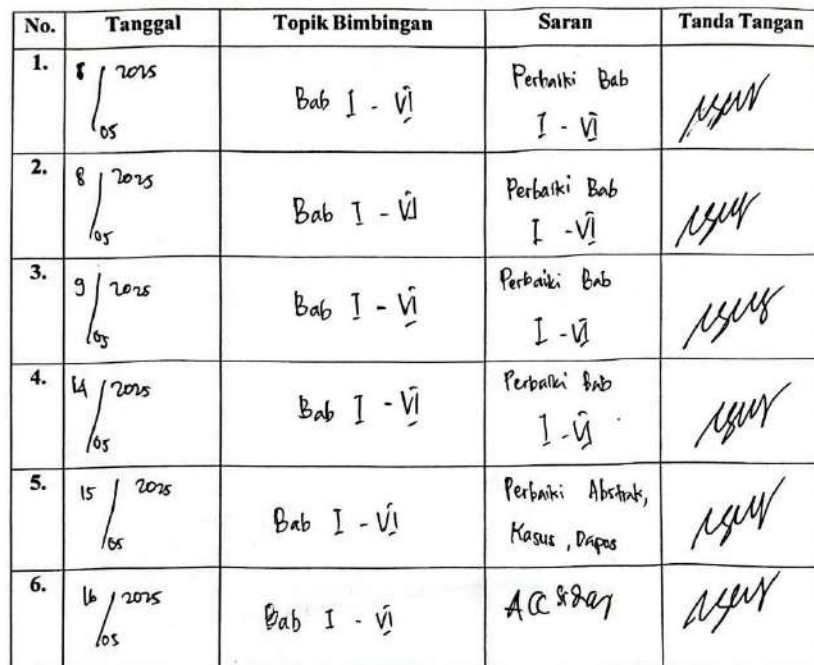 No. Tanggal Topik Bimbingan Saran Tanda Tangan
1. 8/05 2025 Bab I - VI Perbaiki Bab
I - VI
2. 8/05 2025 Bab I - VI Perbaiki Bab
I - VI
3. 9/05 2025 Bab I - VI Perbaiki Bab
I - VI
4. 14/05 2025 Bab I - VI Perbaiki Bab
I - VI
5. 15/05 2025 Bab I - VI Perbaiki Abstrak,
Kasus, Dapus
6. 16/05 2025 Bab I - VI ACC